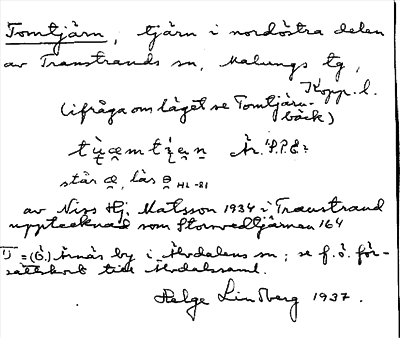 Tomtjärn, tjärn i nordöstra delen
av Transtrands sn, Malungs tg,
Kopp. l.
(ifråga om läget se Tomtjärn-
bäck)
står æ, läs
HL -81
av Niss Hj. Matsson 1934 i Transtrand
upptecknad som Storvedtjärnen 164
= (Ö.) Ärnäs by i Älvdalens sn; se f. ö. för-
sättskort till Älvdalssaml.
Helge Lindberg 1937.